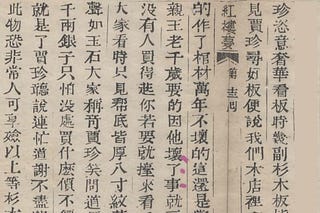 珍恣意奢華看板時幾副杉木板
見賈珍尋好板便說我們木店裡
紅樓夢 第十三回
的作了棺材萬年不壞的這還是
親王老千歲要的因他壞了事就
沒有人買得起你若要就擡來看
大家看時只見幫底皆厚八寸紋
聲如玉石大家稱奇賈珍笑問道
千兩銀子只怕沒處買什麼價不價
就是了賈珍聽說連忙道謝不盡
此物恐非常人可享殮以上等杉木